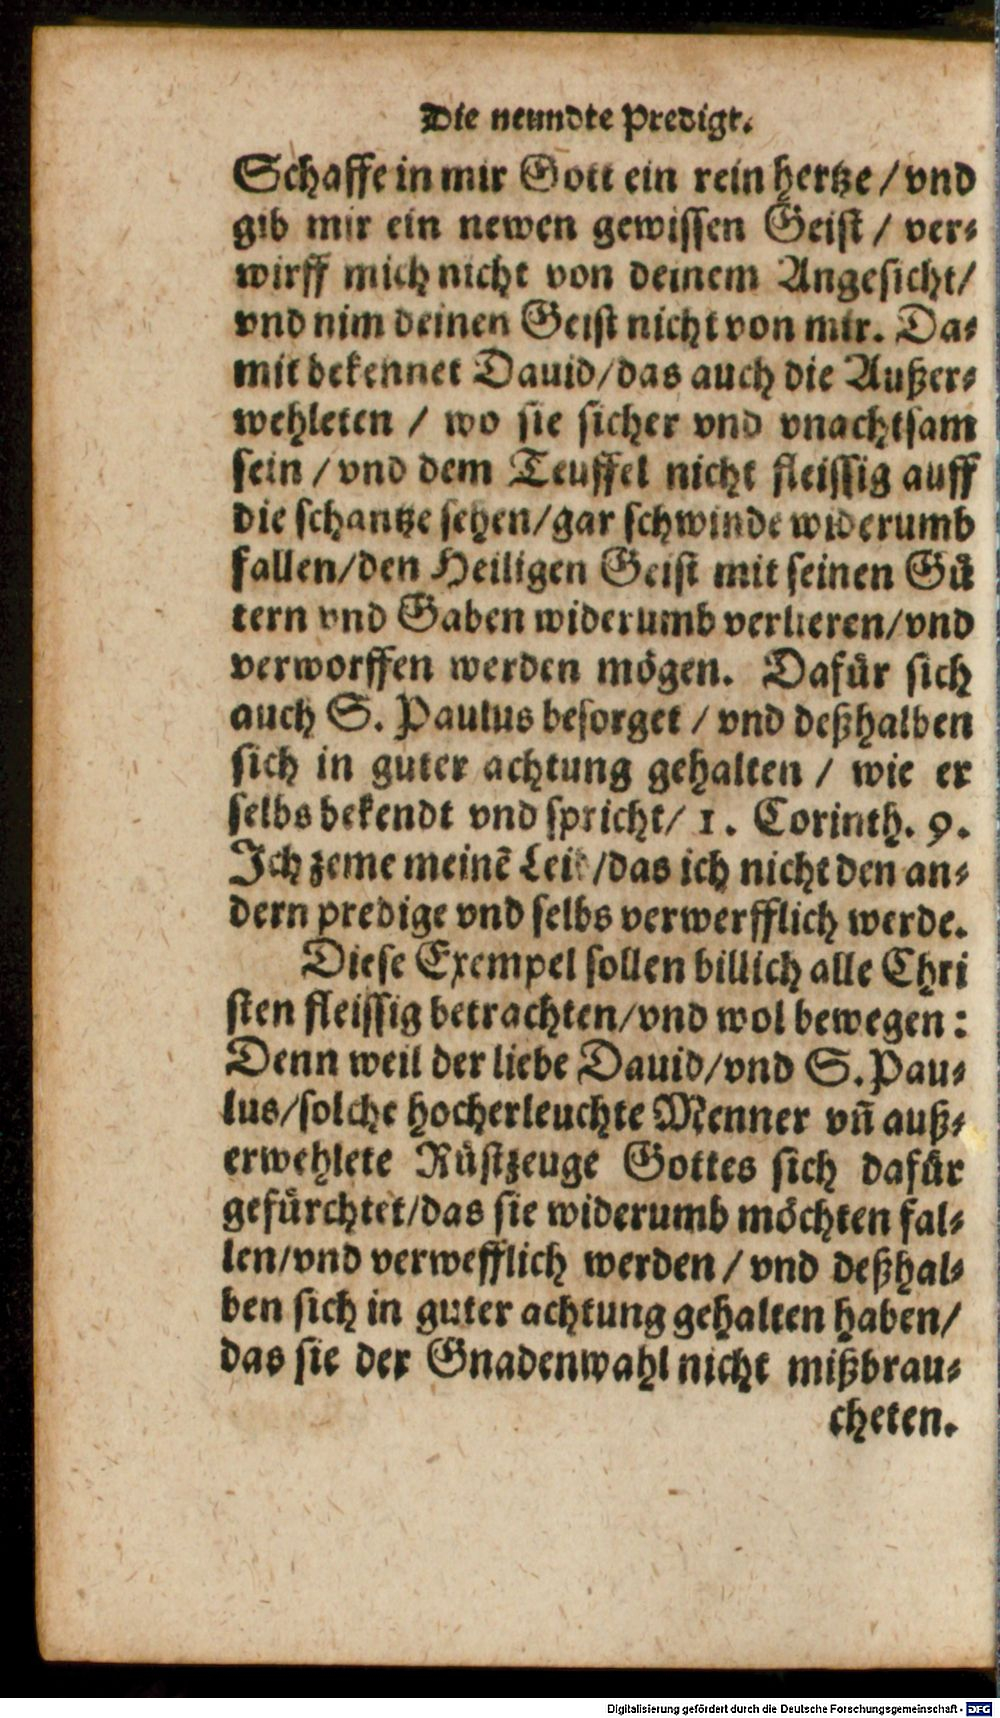 Die neundte Predigt.
Schaffe in mir Gott ein rein hertze / vnd
gib mir ein newen gewissen Geist / ver-
wirff mich nicht von deinem Angesicht/
vnd nim deinen Geist nicht von mir. Da-
mit bekennet Dauid/das auch die Außer-
wehleten / wo sie sicher vnd vnachtsam
sein / vnd dem Teuffel nicht fleissig auff
die schantze sehen/gar schwinde widerumb
fallen/den Heiligen Geist mit seinen Guͤ
tern vnd Gaben widerumb verlieren/vnd
verworffen werden moͤgen. Dafuͤr sich
auch S. Paulus besorget / vnd deßhalben
sich in guter achtung gehalten / wie er
selbs bekendt vnd spricht/ 1. Corinth. 9.
Ich zeme meinē Leib/das ich nicht den an-
dern predige vnd selbs verwerfflich werde.
Diese Exempel sollen billich alle Chri
sten fleissig betrachten/vnd wol bewegen:
Denn weil der liebe Dauid/vnd S. Pau-
lus/solche hocherleuchte Menner vn̄ auß-
erwehlete Ruͤstzeuge Gottes sich dafuͤr
gefuͤrchtet/das sie widerumb moͤchten fal-
len/vnd verwefflich werden / vnd deßhal-
ben sich in guter achtung gehalten haben/
das sie der Gnadenwahl nicht mißbrau-
cheten.
Digitalisierung gefördert durch die Deutsche Forschungsgemeinschaft - DFG